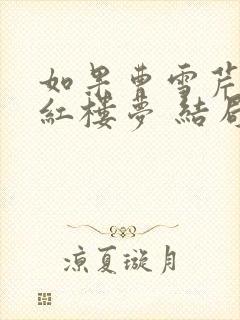 如果曹雪芹
紅樓夢 結局
涼夏璇月